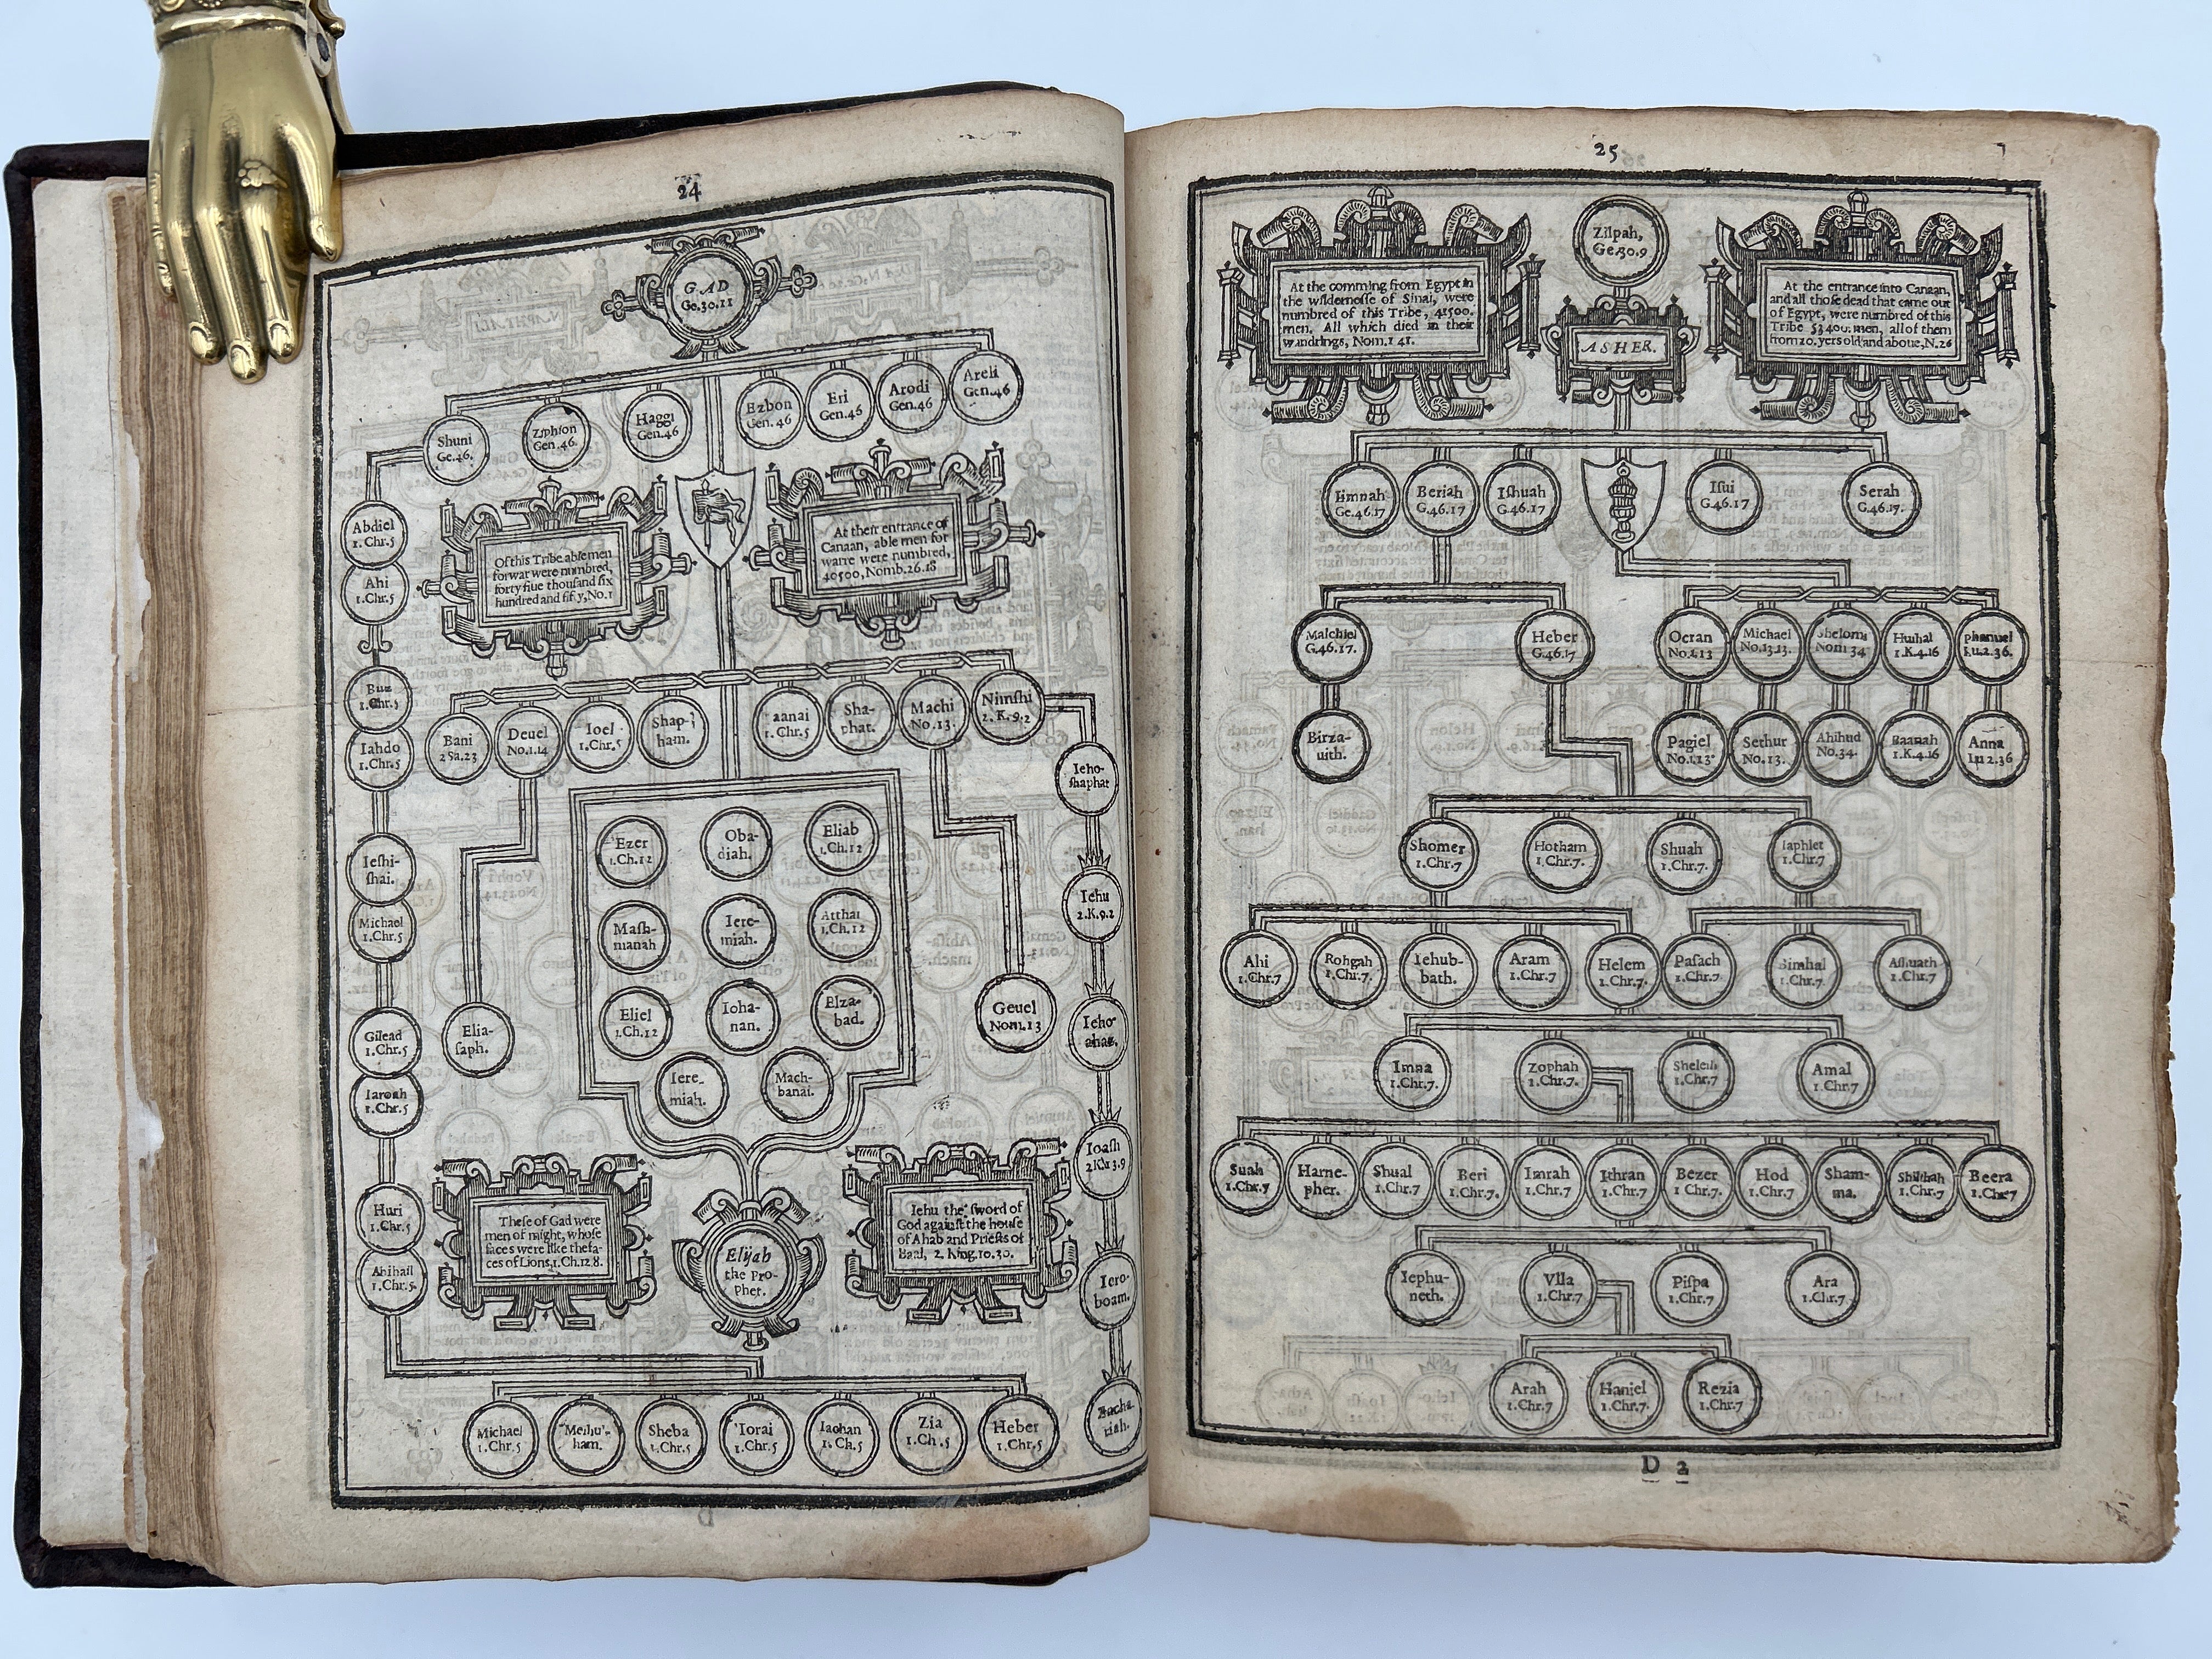 24
GAD
Ge.30.11
Shuni
Ge.46.
Ziphion
Gen.46.
Haggi
Gen.46
Ezbon
Gen.46
Eri
Gen.46
Arodi
Gen.46
Areli
Gen.46
Abdiel
1.Chr.5
Ahi
1.Chr.5
Of this Tribe able men
for war were numbred,
forty fiue thouſand ſix
hundred and fifty, No.1
At their entrance of
Canaan, able men for
warre were numbred,
40500, Nomb.26.18
Buz
1.Chr.5
Iahdo
1.Chr.5
Bani
2 Sa.23
Deuel
No.1.14
Ioel
1.Chr.5
Shap-
ham.
aanai
1.Chr.5
Sha-
phat.
Machi
No.13.
Nimſhi
2.K.9.2
Ieho-
ſhaphat
Ieſhi-
ſhai.
Michael
1.Chr.5
Ezer
1.Ch.12
Oba-
diah.
Eliab
1.Ch.12
Iehu
2.K.9.2
Maſh-
manah
Iere-
miah.
Atthai
1.Ch.12
Gilead
1.Chr.5
Iaroah
1.Chr.5
Elia-
ſaph.
Eliel
1.Ch.12
Ioha-
nan.
Elza-
bad.
Geuel
Nom.13
Ieho-
ahaz.
Iere-
miah.
Mach-
banai.
Ioaſh
2.K.13.9
Huri
1.Chr.5
Abihail
1.Chr.5.
Theſe of Gad were
men of might, whoſe
faces were like the fa-
ces of Lions, 1.Ch.12.8.
Elijah
the Pro-
phet.
Iehu the ſword of
God againſt the houſe
of Ahab and Prieſts of
Baal, 2.King.10.30.
Iero-
boam.
Michael
1.Chr.5
ham.
Sheba
1.Chr.5
Iorai
1.Chr.5
Iachan
1.Ch.5
Zia
1.Ch.5
Heber
1.Chr.5
Zacha-
riah.
25
At the comming from Egypt in
the wilderneſſe of Sinai, were
numbred of this Tribe, 41500.
men. All which died in their
wandrings, Nom.1 41.
Zilpah,
Ge.30.9
ASHER.
At the entrance into Canaan,
and all thoſe dead that came out
of Egypt, were numbred of this
Tribe 53400. men, all of them
from 20. yers old and aboue, N.26
Iimnah
Ge.46.17
Beriah
G.46.17
Iſhuah
G.46.17
Iſui
G.46.17
Serah
G.46.17.
Malchiel
G.46.17.
Heber
G.46.17
Ocran
No.1.13
Michael
No.13.13.
Shelomi
Nom 34
Huſhai
1.K.4.16
Phanuel
Lu.2.36.
Birza-
uith.
Pagiel
No.1.13
Sethur
No.13.
Ahihud
No.34.
Baanah
1.K.4.16
Anna
Lu 2.36
Shomer
1.Chr.7
Hotham
1.Chr.7.
Shuah
1.Chr.7.
Iaphlet
1.Chr.7
Ahi
1.Chr.7
Rohgah
1.Chr.7.
Iehub-
bath.
Aram
1.Chr.7
Helem
1.Chr.7.
Paſach
1.Chr.7.
Bimhal
1.Chr.7.
Aſhuath
1.Chr.7
Imna
1.Chr.7.
Zophah
1.Chr.7.
Sheleſh
1.Chr.7
Amal
1.Chr.7
Suah
1.Chr.7
Harne-
pher.
Shual
1.Chr.7
Beri
1.Chr.7.
Imrah
1.Chr.7
Ithran
1.Chr.7
Bezer
1.Chr.7.
Hod
1.Chr.7
Sham-
ma.
Shilſhah
1.Chr.7
Beera
1.Chr.7
Iephu-
neth.
Vlla
1.Chr.7
Piſpa
1.Chr.7
Ara
1.Chr.7
Arah
1.Chr.7
Haniel
1.Chr.7.
Rezia
1.Chr.7
D 2